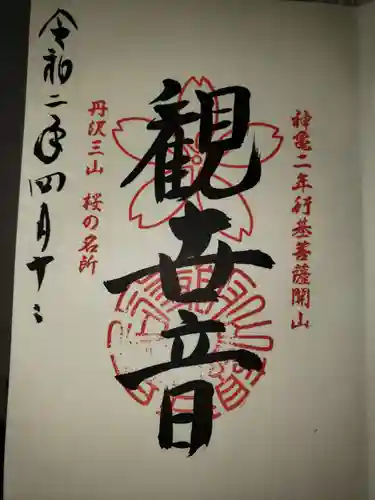 神亀二年行基菩薩開山
観世音
丹沢三山 桜の名所
令和二年四月十二